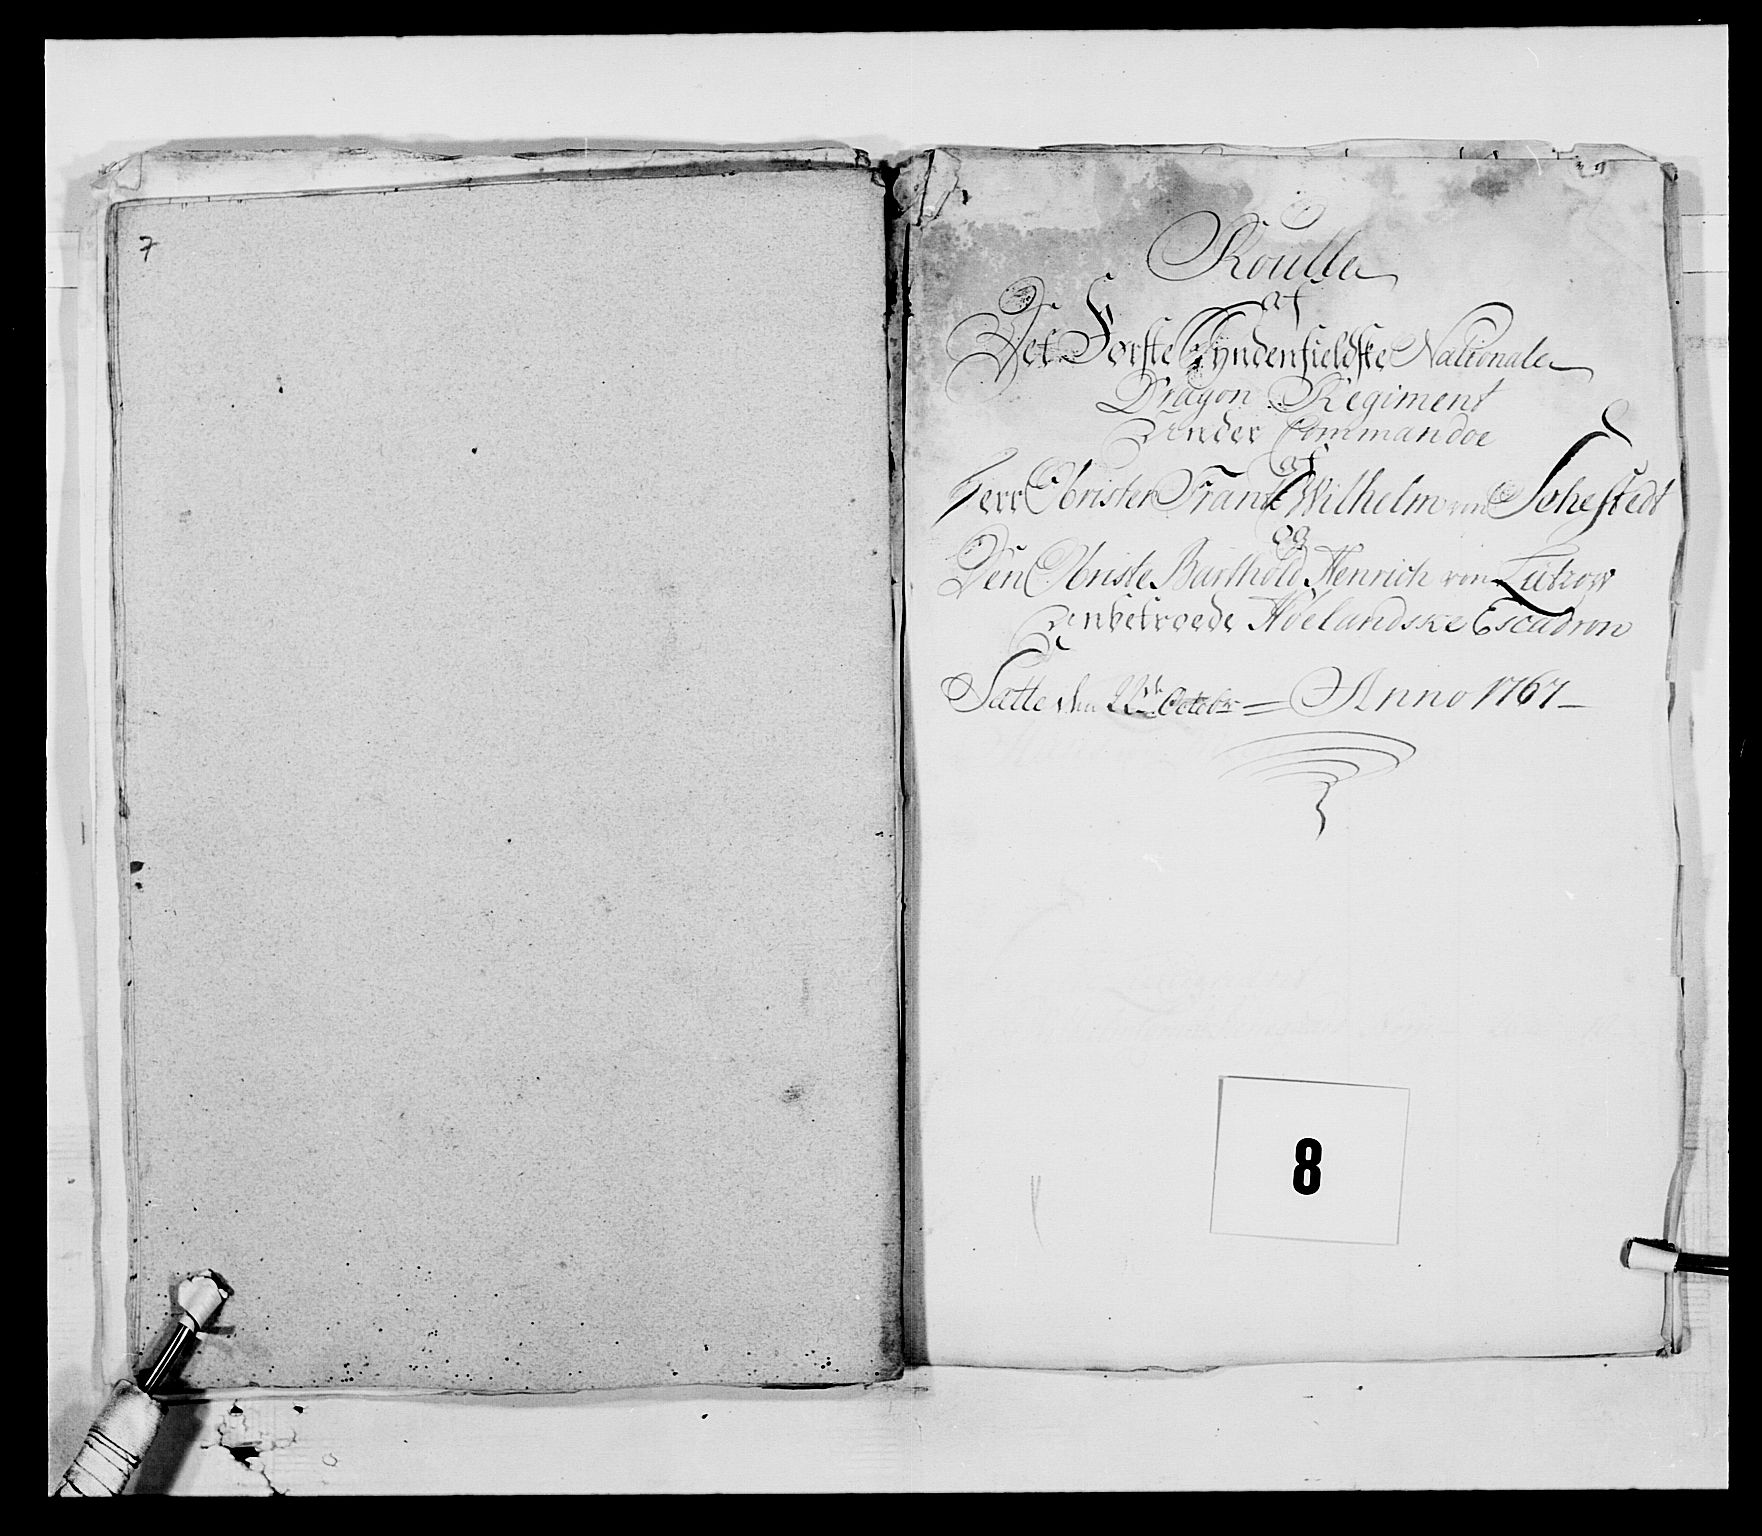 7
Roulle
af
Det Første Syndenfieldske Nationale
Dragon Regiment
under Commandoe
af
Herr Obrister Frantz Wilhelm von Sehestedt
og
Den Obriste Barthold Henrich von Lützow
Anbetroede Høelandske Escadron
Satte den 22de Octobr = Anno 1767
8